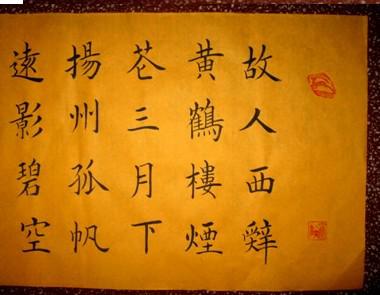 故人西辭
黄鶴樓煙
花三月下
揚州孤帆
遠影碧空